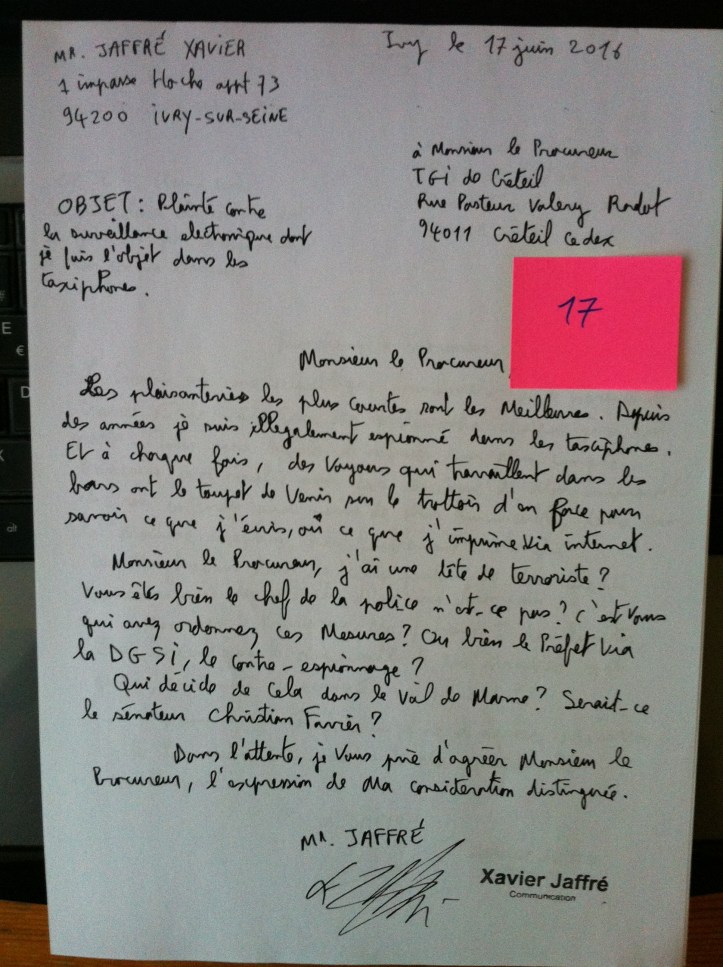 MR. JAFFRÉ XAVIER
1 impasse Hoche appt 73
94200 IVRY-SUR-SEINE
Ivry le 17 juin 2016
à Monsieur le Procureur
TGI de Créteil
Rue Pasteur Valery Radot
94011 Créteil Cedex
OBJET : Plainte contre
la surveillance electronique dont
je suis l'objet dans les
taxiphones.
17
Monsieur le Procureur,
Les plaisanteries les plus courtes sont les Meilleures. Depuis
des années je suis illegalement espionné dans les taxiphones.
Et à chaque fois, des Voyous qui travaillent dans les
bars ont le toupet de Venir sur le trottoir d'en face pour
savoir ce que j'écris, où ce que j'imprime via internet.
Monsieur le Procureur, j'ai une tête de terroriste ?
Vous êtes bien le chef de la police n'est-ce pas ? C'est Vous
qui avez ordonnez ces Mesures ? Ou bien le Préfet via
la DGSI, le contre-espionnage ?
Qui décide de cela dans le Val de Marne ? Serait-ce
le sénateur Christian Favier ?
Dans l'attente, je Vous prie d'agréer Monsieur le
Procureur, l'expression de Ma consideration distinguée.
MR. JAFFRÉ
Xavier Jaffré
Communication